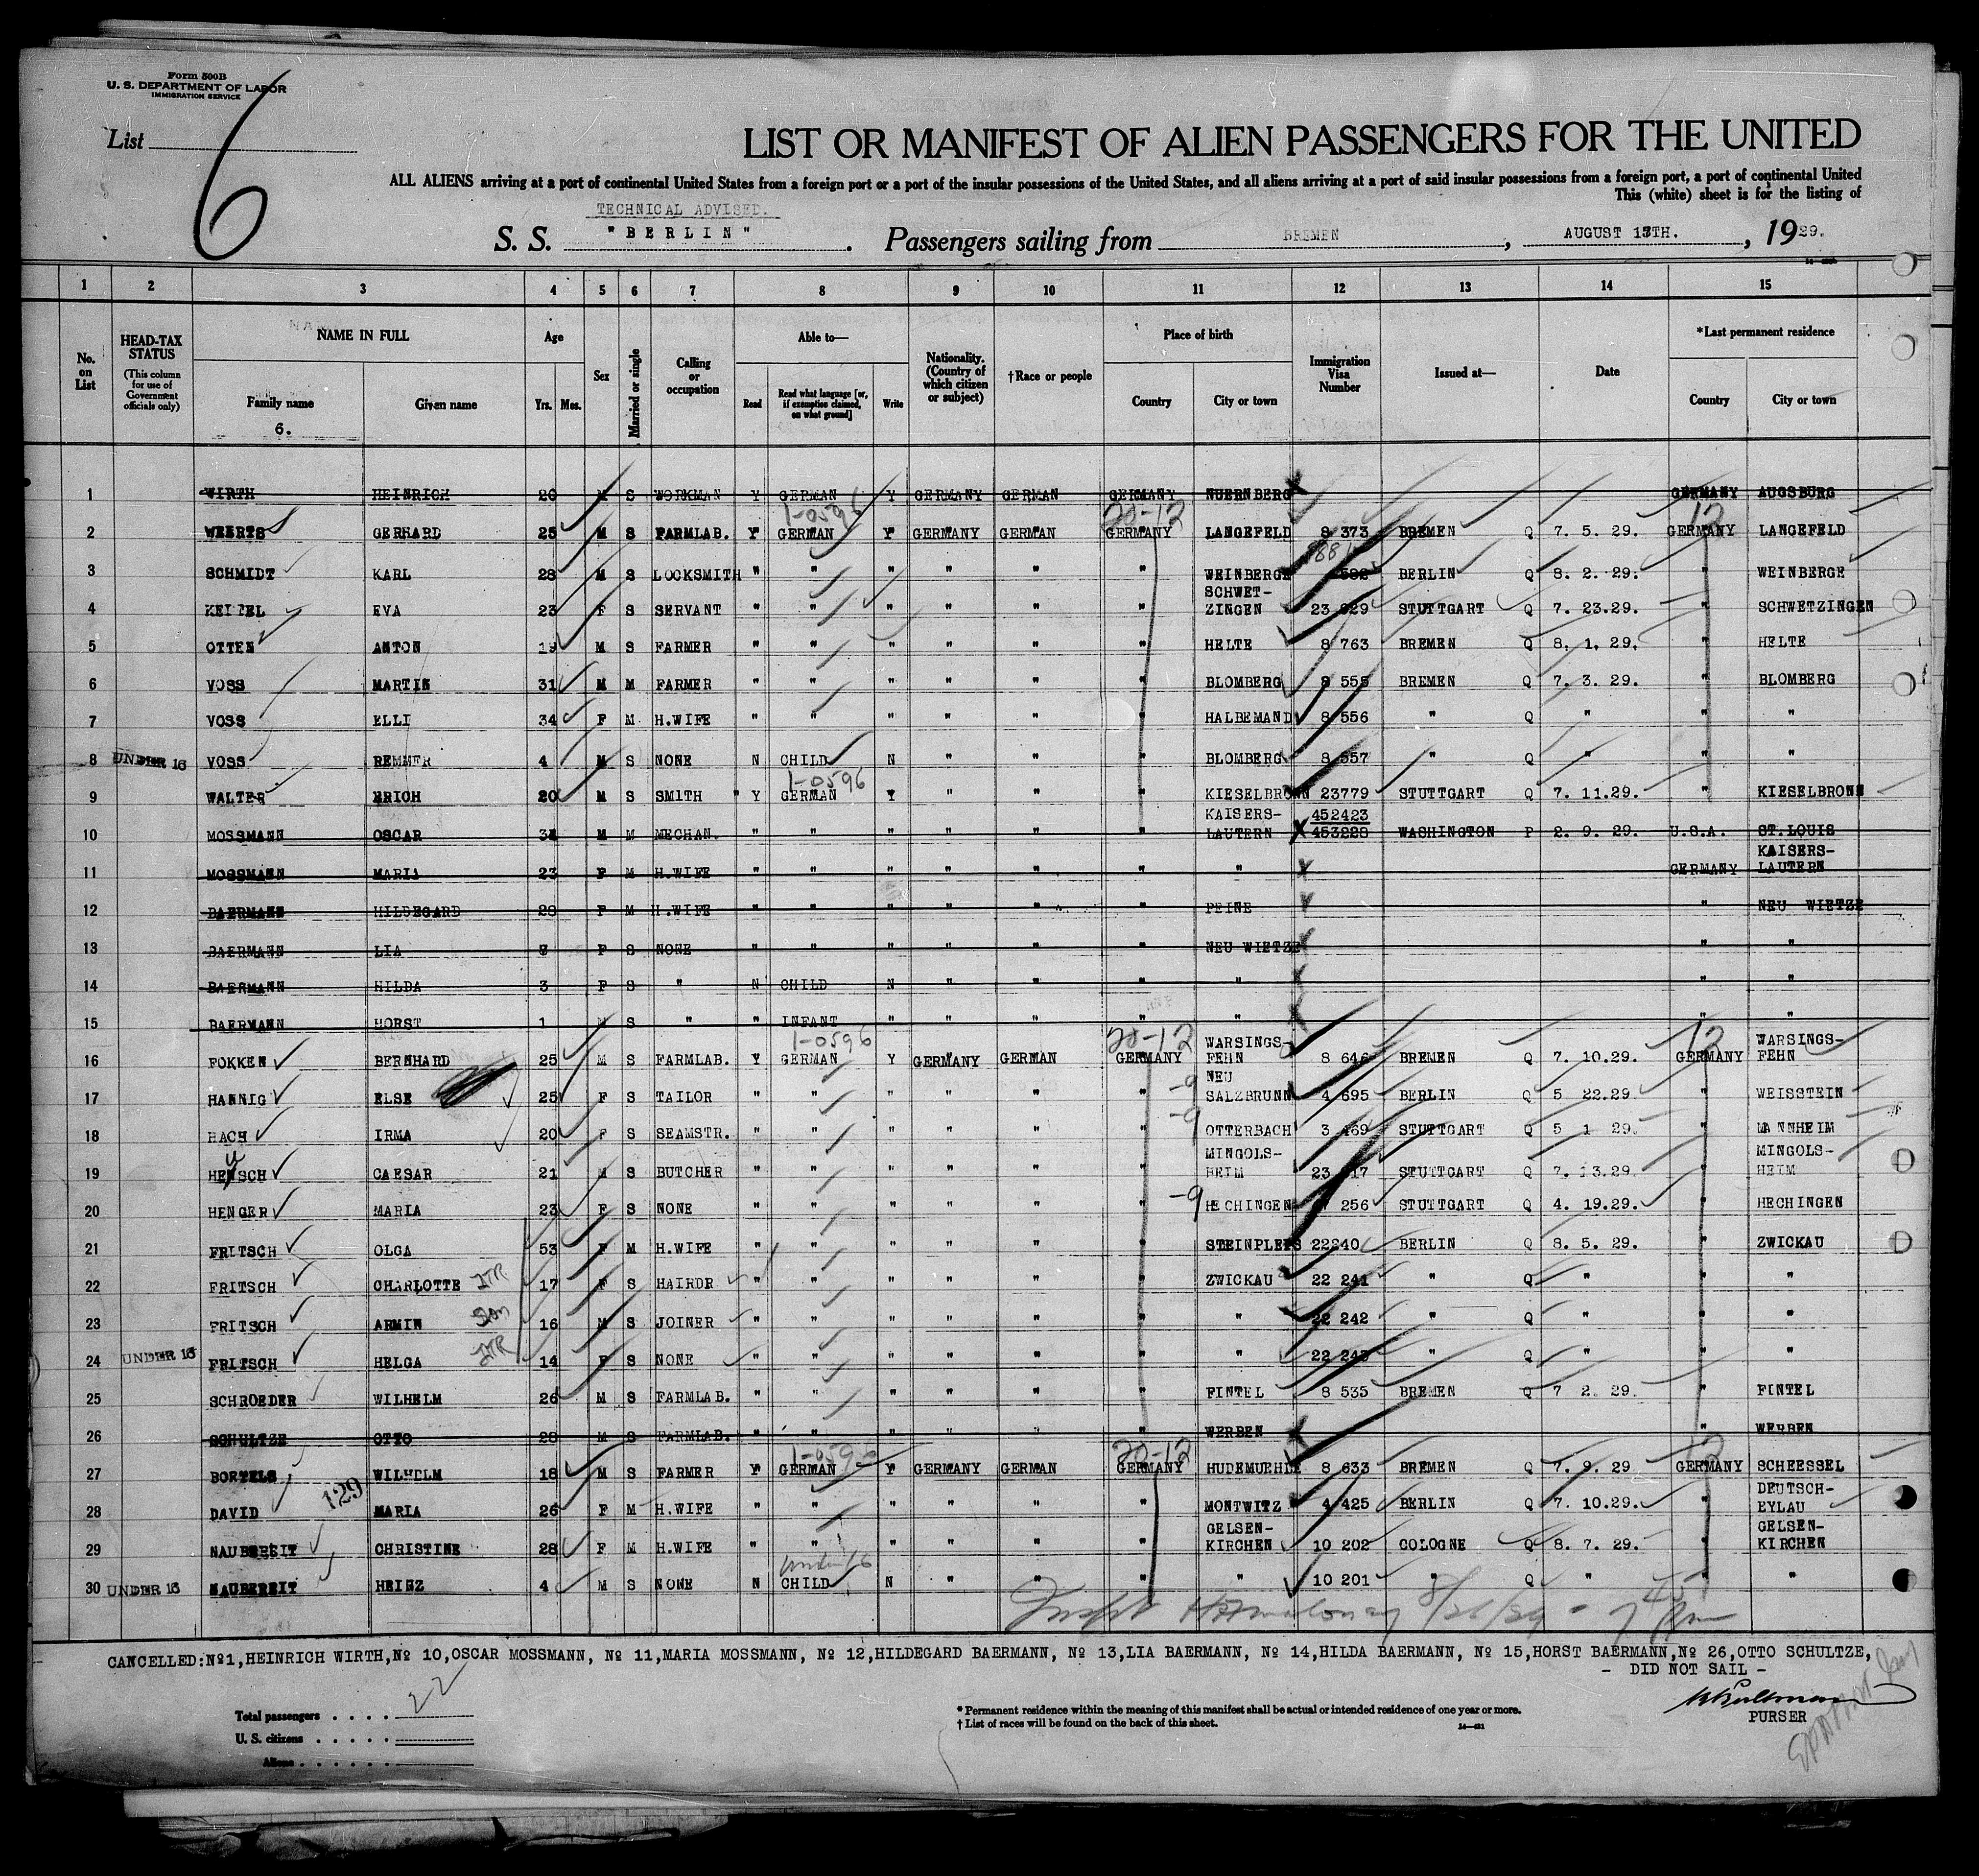 Form 500B
U. S. DEPARTMENT OF LABOR
IMMIGRATION SERVICE
List 6
LIST OR MANIFEST OF ALIEN PASSENGERS FOR THE UNITED
ALL ALIENS arriving at a port of continental United States from a foreign port or a port of the insular possessions of the United States, and all aliens arriving at a port of said insular possessions from a foreign port, a port of continental United
This (white) sheet is for the listing of
TECHNICAL ADVISED.
S. S. "BERLIN". Passengers sailing from BREMEN, AUGUST 17TH., 1929.
1 2 3 4 5 6 7 8 9 10 11 12 13 14 15
No. on List
HEAD-TAX STATUS (This column for use of Government officials only)
NAME IN FULL
Family name Given name
6.
Age
Yrs. Mos.
Sex
Married or single
Calling or occupation
Able to—
Read Read what language [or, if exemption claimed, on what ground] Write
Nationality. (Country of which citizen or subject)
†Race or people
Place of birth
Country City or town
Immigration Visa Number
Issued at—
Date
*Last permanent residence
Country City or town
1 WIRTH HEINRICH 20 M S WORKMAN Y GERMAN Y GERMANY GERMAN GERMANY NUERNBERG GERMANY AUGSBURG
1-0596 20-12 12
2 WEERTS GERHARD 25 M S FARMLAB. Y GERMAN Y GERMANY GERMAN GERMANY LANGEFELD 8 373 BREMEN Q 7. 5. 29. GERMANY LANGEFELD
3 SCHMIDT KARL 28 M S LOCKSMITH " " " " " " WEINBERGE BERLIN Q 8. 2. 29. " WEINBERGE
4 EVA 23 F S SERVANT " " " " " " SCHWET-
ZINGEN 23 929 STUTTGART Q 7. 23.29. " SCHWETZINGEN
5 OTTEN ANTON 19 M S FARMER " " " " " " HELTE 8 763 BREMEN Q 8. 1. 29. " HELTE
6 VOSS MARTIN 31 M M FARMER " " " " " " BLOMBERG 8 555 BREMEN Q 7. 3. 29. " BLOMBERG
7 VOSS ELLI 34 F M H.WIFE " " " " " " HALBEMAND 8 556 " Q " " "
8 UNDER 16 VOSS REMMER 4 M S NONE N CHILD N " " " BLOMBERG 8 557 " Q " " "
1-0596
9 WALTER ERICH 20 M S SMITH " Y GERMAN Y " " " KIESELBRONN 23779 STUTTGART Q 7. 11.29. " KIESELBRONN
KAISERS- 452423
10 MOSSMANN OSCAR 34 M M MECHAN. " " " " " " LAUTERN 453228 WASHINGTON P 2. 9. 29. U.S.A. ST.LOUIS
KAISERS-
11 MOSSMANN MARIA 23 F M H.WIFE " " " " " " " GERMANY LAUTERN
12 BAERMANN HILDEGARD 28 F M H.WIFE " " " " " " PEINE " NEU WIETZE
13 BAERMANN LIA F S NONE " " " " " " NEU WIETZE " "
14 BAERMANN HILDA 3 F S " N CHILD N " " " " " "
15 BAERMANN HORST 1 M S " " INFANT " " " " " " "
1-0596 20-12 WARSINGS- 12 WARSINGS-
16 FOKKEN BERNHARD 25 M S FARMLAB. Y GERMAN Y GERMANY GERMAN GERMANY FEHN 8 646 BREMEN Q 7. 10.29. GERMANY FEHN
-9 NEU
17 HANNIG ELSE 25 F S TAILOR " " " " " " SALZBRUNN 4 695 BERLIN Q 5 22.29. " WEISSTEIN
-9
18 HACH IRMA 20 F S SEAMSTR. " " " " " " OTTERBACH 3 469 STUTTGART Q 5 1 29. " MANNHEIM
MINGOLS- MINGOLS-
19 CAESAR 21 M S BUTCHER " " " " " " HEIM STUTTGART Q 7. 13.29. " HEIM
20 HENGER MARIA 23 F S NONE " " " " " " -9 HECHINGEN 256 STUTTGART Q 4. 19.29. " HECHINGEN
21 FRITSCH OLGA 53 F M H.WIFE " " " " " " STEINPLEIS 22240 BERLIN Q 8. 5. 29. " ZWICKAU
22 FRITSCH CHARLOTTE 17 F S HAIRDR " " " " " " ZWICKAU 22 241 " Q " " "
23 FRITSCH ARMIN Son 16 M S JOINER " " " " " " " 22 242 " Q " " "
24 UNDER 16 FRITSCH HELGA 14 F S NONE " " " " " " " 22 243 " Q " " "
25 SCHROEDER WILHELM 26 M S FARMLAB. " " " " " " FINTEL 8 535 BREMEN Q 7 2. 29. " FINTEL
26 SCHULTZE OTTO 28 M S FARMLAB. " " " " " " WERBEN " WERBEN
1-0596 20-12 12
27 BORTELS WILHELM 18 M S FARMER Y GERMAN Y GERMANY GERMAN GERMANY HUDEMUEHLE 8 633 BREMEN Q 7. 9. 29 GERMANY SCHEESSEL
129 DEUTSCH-
28 DAVID MARIA 26 F M H.WIFE " " " " " " MONTWITZ 4 425 BERLIN Q 7. 10.29. " EYLAU
GELSEN- GELSEN-
29 NAUBEREIT CHRISTINE 28 F M H.WIFE " " " " " " KIRCHEN 10 202 COLOGNE Q 8. 7. 29. " KIRCHEN
under 16
30 UNDER 16 NAUBEREIT HEINZ 4 M S NONE N CHILD N " " " " 10 201 " Q " " "
8/26/29
CANCELLED:№1,HEINRICH WIRTH,№ 10,OSCAR MOSSMANN, № 11,MARIA MOSSMANN, № 12,HILDEGARD BAERMANN, № 13,LIA BAERMANN, № 14,HILDA BAERMANN, № 15,HORST BAERMANN,№ 26,OTTO SCHULTZE,
- DID NOT SAIL -
PURSER
Total passengers . . . . 22
U. S. citizens . . . . .
Aliens . . . . . .
* Permanent residence within the meaning of this manifest shall be actual or intended residence of one year or more.
† List of races will be found on the back of this sheet.
14—421